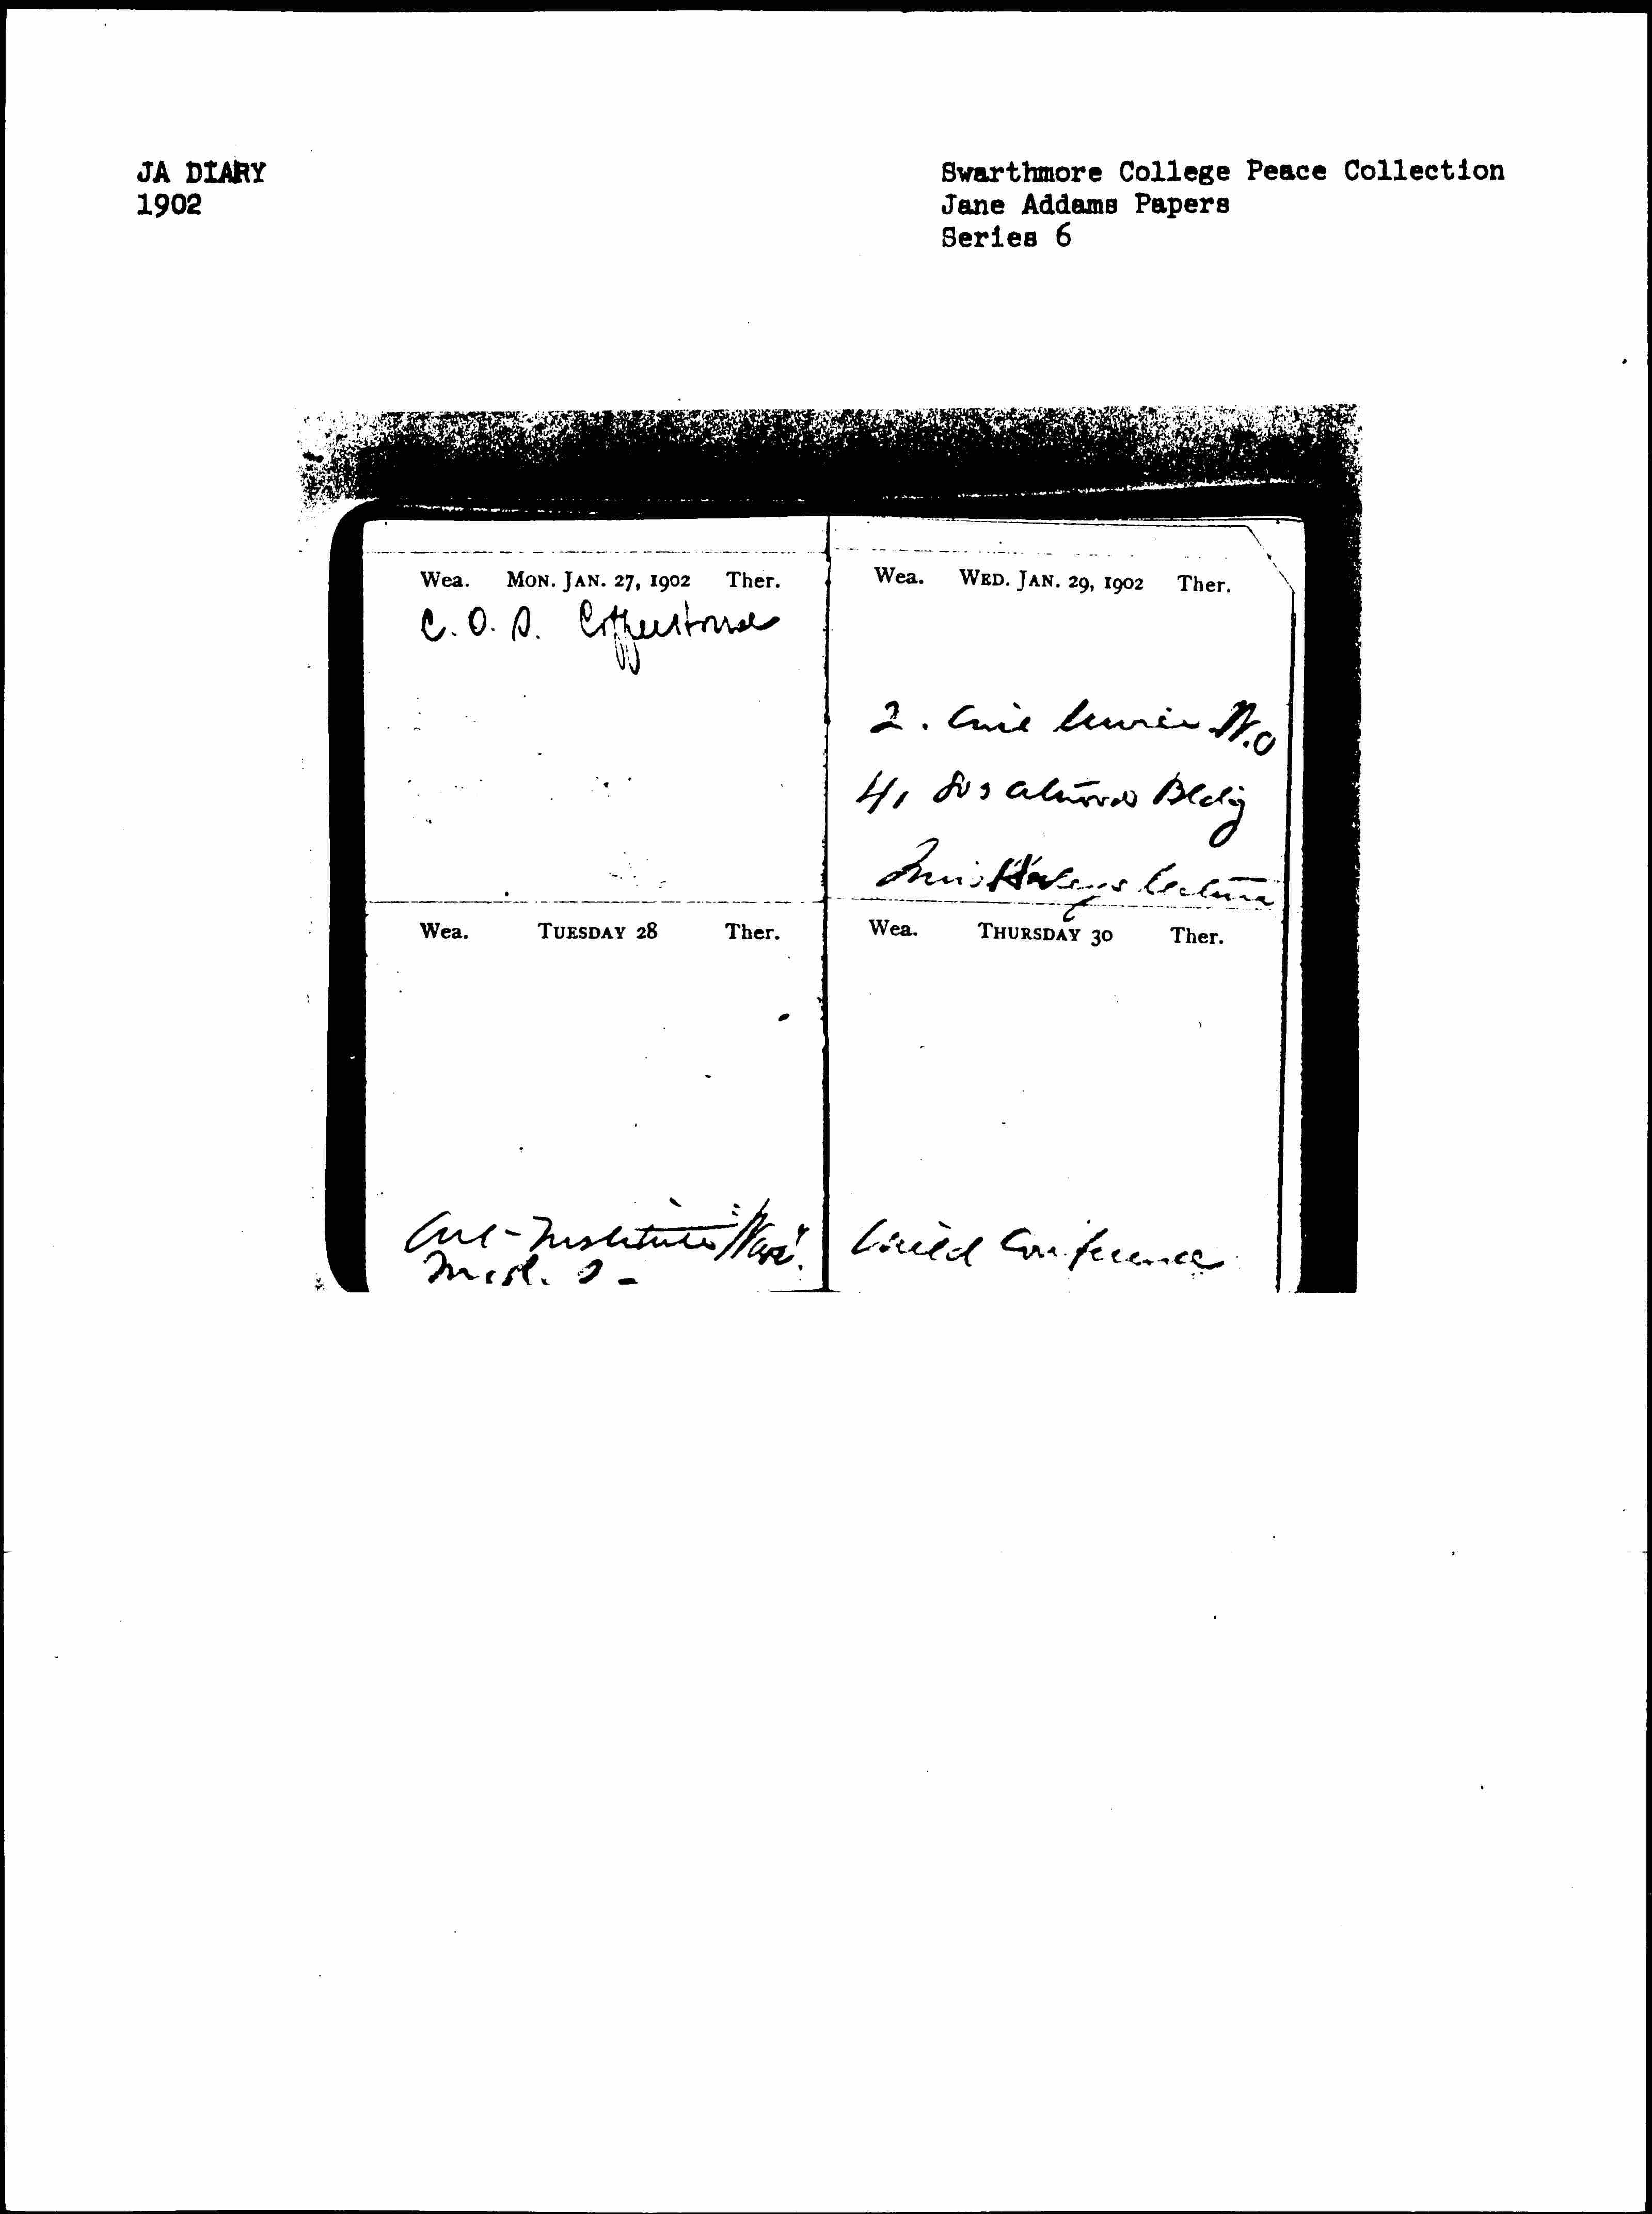 JA DIARY
1902
Swarthmore College Peace Collection
Jane Addams Papers
Series 6
Wea. MON. JAN. 27, 1902 Ther.
C. O. S. Coffeehouse
Wea. TUESDAY 28 Ther.
Art-Institute
Wea. WED. JAN. 29, 1902 Ther.
2. Civil Service
4, 803 Bldg
Miss Haley's Lecture
Wea. THURSDAY 30 Ther.
Conference